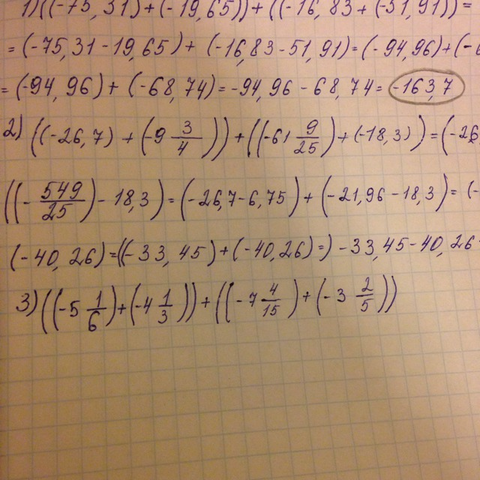 1)((-75,31)+(-19,65))+((-16,83+(-51,91))=
=(-75,31-19,65)+(-16,83-51,91)=(-94,96)+(-6
=(-94,96)+(-68,74)=-94,96-68,74=-163,7
2)((-26,7)+(-9 3/4))+((-61 9/25)+(-18,3))=(-26
((-549/25)-18,3)=(-26,7-6,75)+(-21,96-18,3)=(-
(-40,26)=((-33,45)+(-40,26)=)-33,45-40,26
3)((-5 1/6)+(-4 1/3))+((-7 4/15)+(-3 2/5))